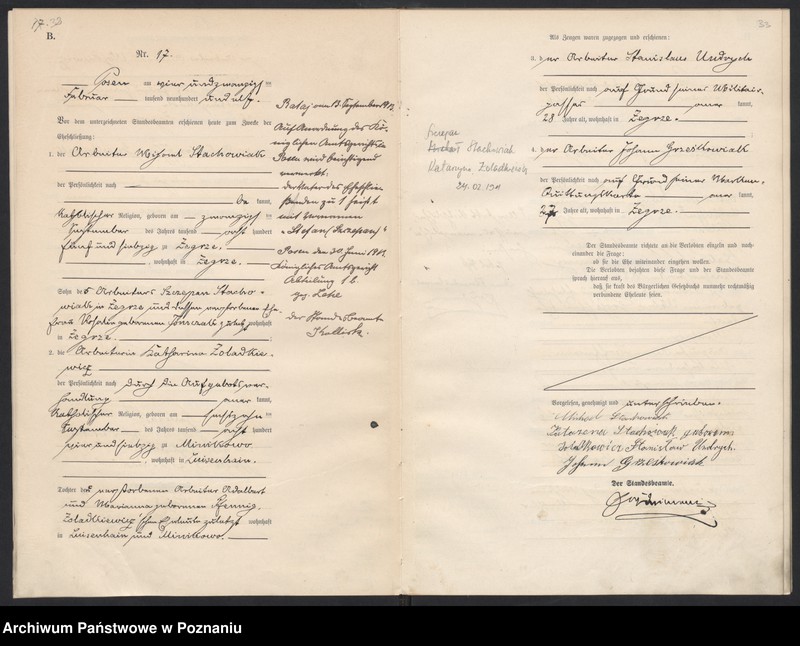 17. 38
B.
Nr. 17.
Posen am vier und zwanzigsten
Februar tausend neunhundert und elf.
Vor dem unterzeichneten Standesbeamten erschienen heute zum Zwecke der
Eheschließung:
1. der Arbeiter Michael Stachowiak
der Persönlichkeit nach
be kannt,
katholischer Religion, geboren am zwanzigsten
September des Jahres tausend acht hundert
fünf und siebzig zu Zegrze.
, wohnhaft in Zegrze.
Sohn des Arbeiters Szczepan Stacho-
wiak in Zegrze und dessen verstorbenen Ehe-
frau geborenen wohnhaft
in Zegrze.
2. die Arbeiterin Katharina Zoladkie-
wicz
der Persönlichkeit nach durch die Aufgebotsver-
handlung aner kannt,
katholischer Religion, geboren am sechszehn ten
September des Jahres tausend acht hundert
vier und siebzig zu Minikowo
, wohnhaft in Luisenhain.
Tochter der verstorbenen Arbeiter Adalbert
und Marianna geborenen Pfennig,
Zoladkiewicz'schen Eheleute zuletzt wohnhaft
in Luisenhain und Minikowo.
Rataj am 13. September 1912
Auf Anordnung des Kö-
niglichen Amtsgerichts
Posen wird berichtigend
vermerkt:
der Vater des Eheschlie-
ßenden zu 1 heißt
mit Vornamen
"Stefan Szczepan"
Posen den 30. Juni 1912.
Königliches Amtsgericht
Abteilung 1 b.
gez.
Der Standesbeamte
33
Szczepan
Stachowiak
Katarzyna Zoladkiewicz
24.02.1911
Als Zeugen waren zugezogen und erschienen:
3. der Arbeiter Stanislaus Undrych
der Persönlichkeit nach auf Grund seines Militär-
passes aner kannt,
28 Jahre alt, wohnhaft in Zegrze.
4. der Arbeiter Johann Grzeskowiak
der Persönlichkeit nach auf Grund seiner Marken-
Quittungskarte aner kannt,
27 Jahre alt, wohnhaft in Zegrze.
Der Standesbeamte richtete an die Verlobten einzeln und nach-
einander die Frage:
ob sie die Ehe miteinander eingehen wollen.
Die Verlobten bejahten diese Frage und der Standesbeamte
sprach hierauf aus,
daß sie kraft des Bürgerlichen Gesetzbuchs nunmehr rechtmäßig
verbundene Eheleute seien.
Vorgelesen, genehmigt und unterschrieben.
Michael Stachowiak
Katarzena Stachowiak geborene
Zoladkowicz Stanisław Undrych.
Johann Grzeskowiak
Der Standesbeamte.
Archiwum Państwowe w Poznaniu